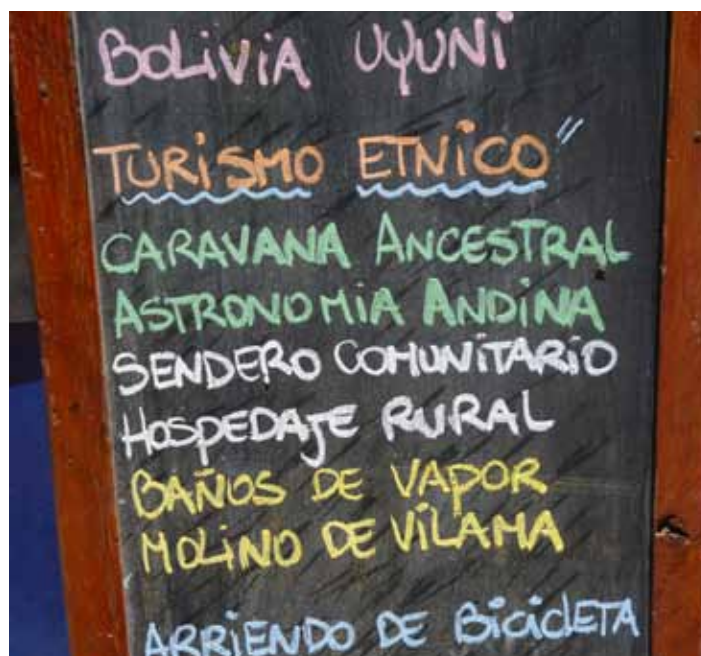 BOLiViA UYUNi
TURiSMO ETNiCO"
CARAVANA ANCESTRAL
ASTRONOMiA ANDiNA
SENDERO COMUNITARIO
HOSPEDAJE RURAL
BAÑOS DE VAPOR
MOLiNO DE ViLAMA
ARRiENDO DE BiCiCLETA